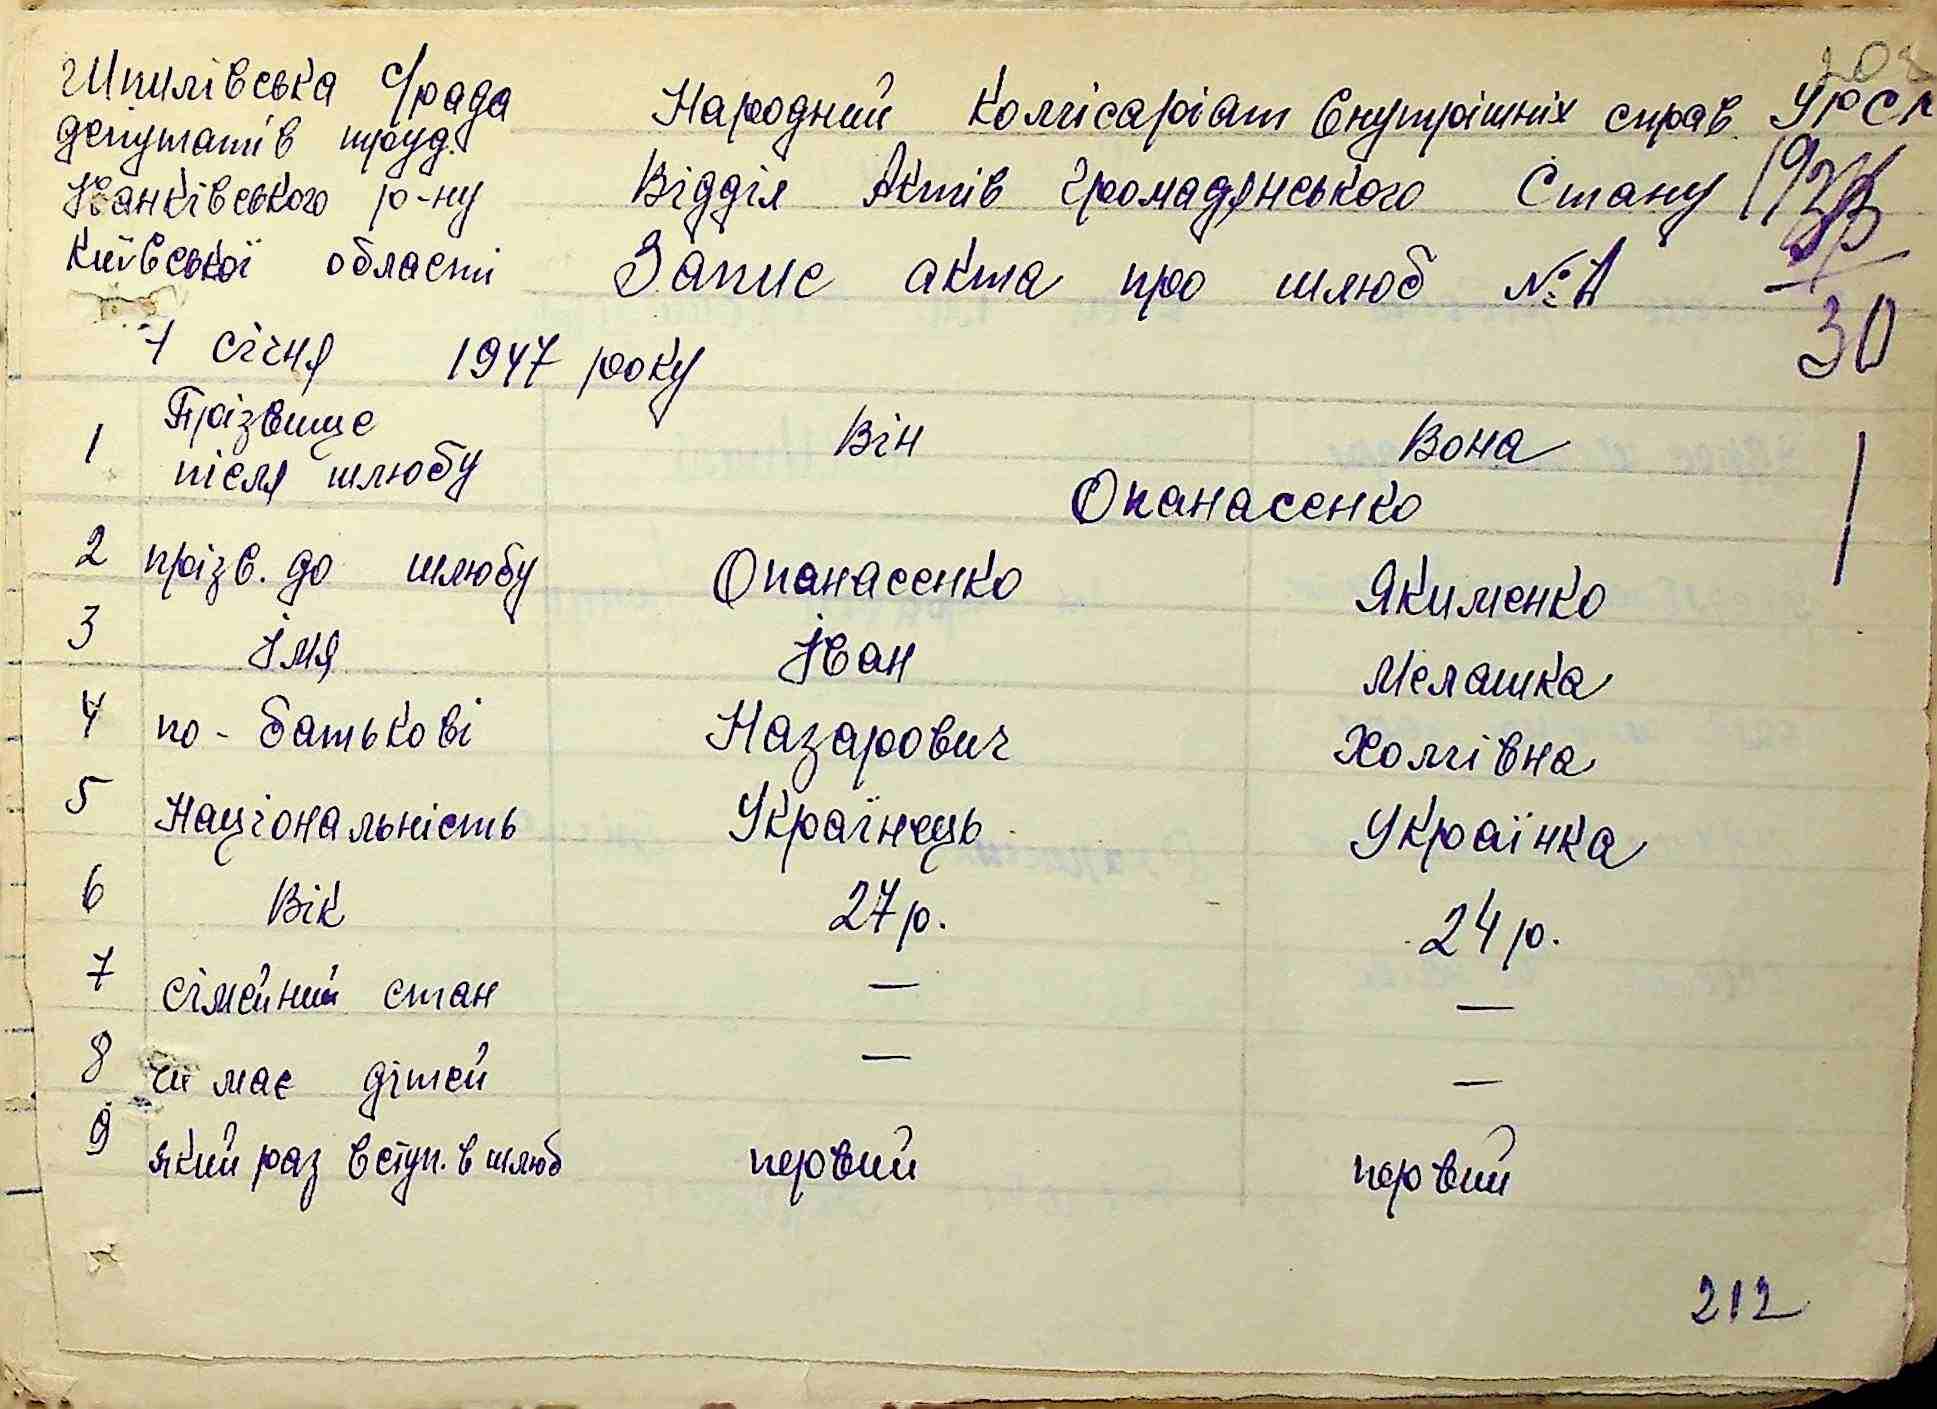 Шпилівська С/рада
депутатів труд.
Іванківського р-ну
Київської області
Народний Комісаріат Внутрішніх справ УРСР
Відділ Актів Громадянського Стану
Запис акта про шлюб № 1
30
1 січня 1947 року
1 Прізвище після шлюбу Він Вона
Опанасенко
2 прізв. до шлюбу Опанасенко Якименко
3 Імя Іван Мелашка
4 по-батькові Назарович Хомівна
5 Національність Українець Українка
6 Вік 27 р. 24 р.
7 сімейний стан — —
8 чи має дітей — —
9 який раз вступ. в шлюб первий первий
212